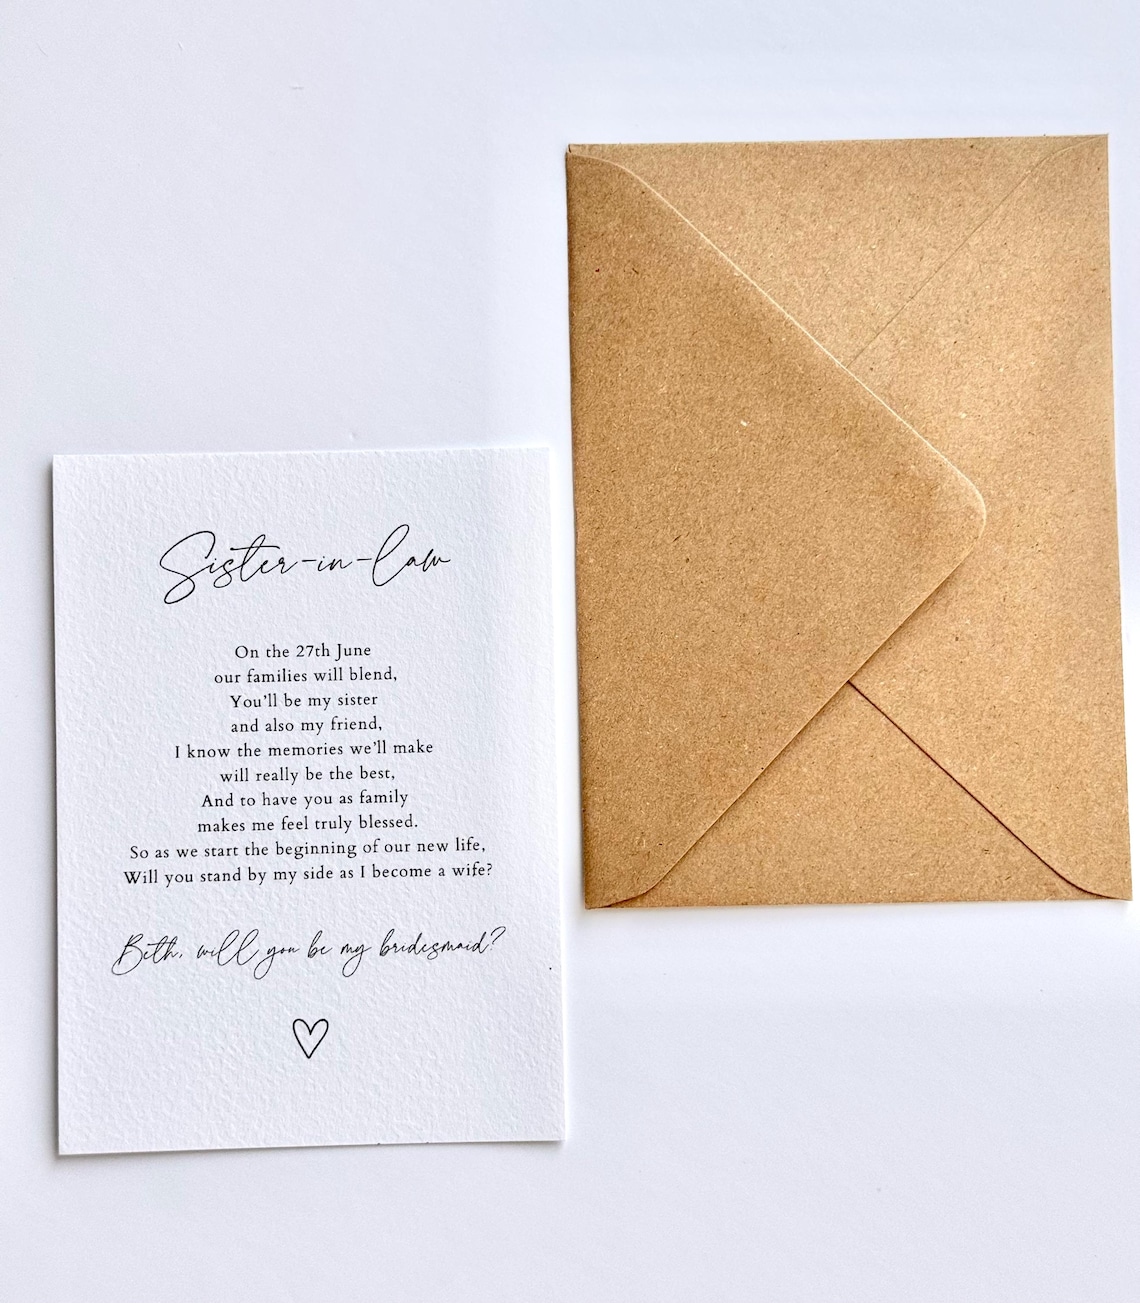 Sister-in-law
On the 27th June
our families will blend,
You'll be my sister
and also my friend,
I know the memories we'll make
will really be the best,
And to have you as family
makes me feel truly blessed.
So as we start the beginning of our new life,
Will you stand by my side as I become a wife?
Beth, will you be my bridesmaid?